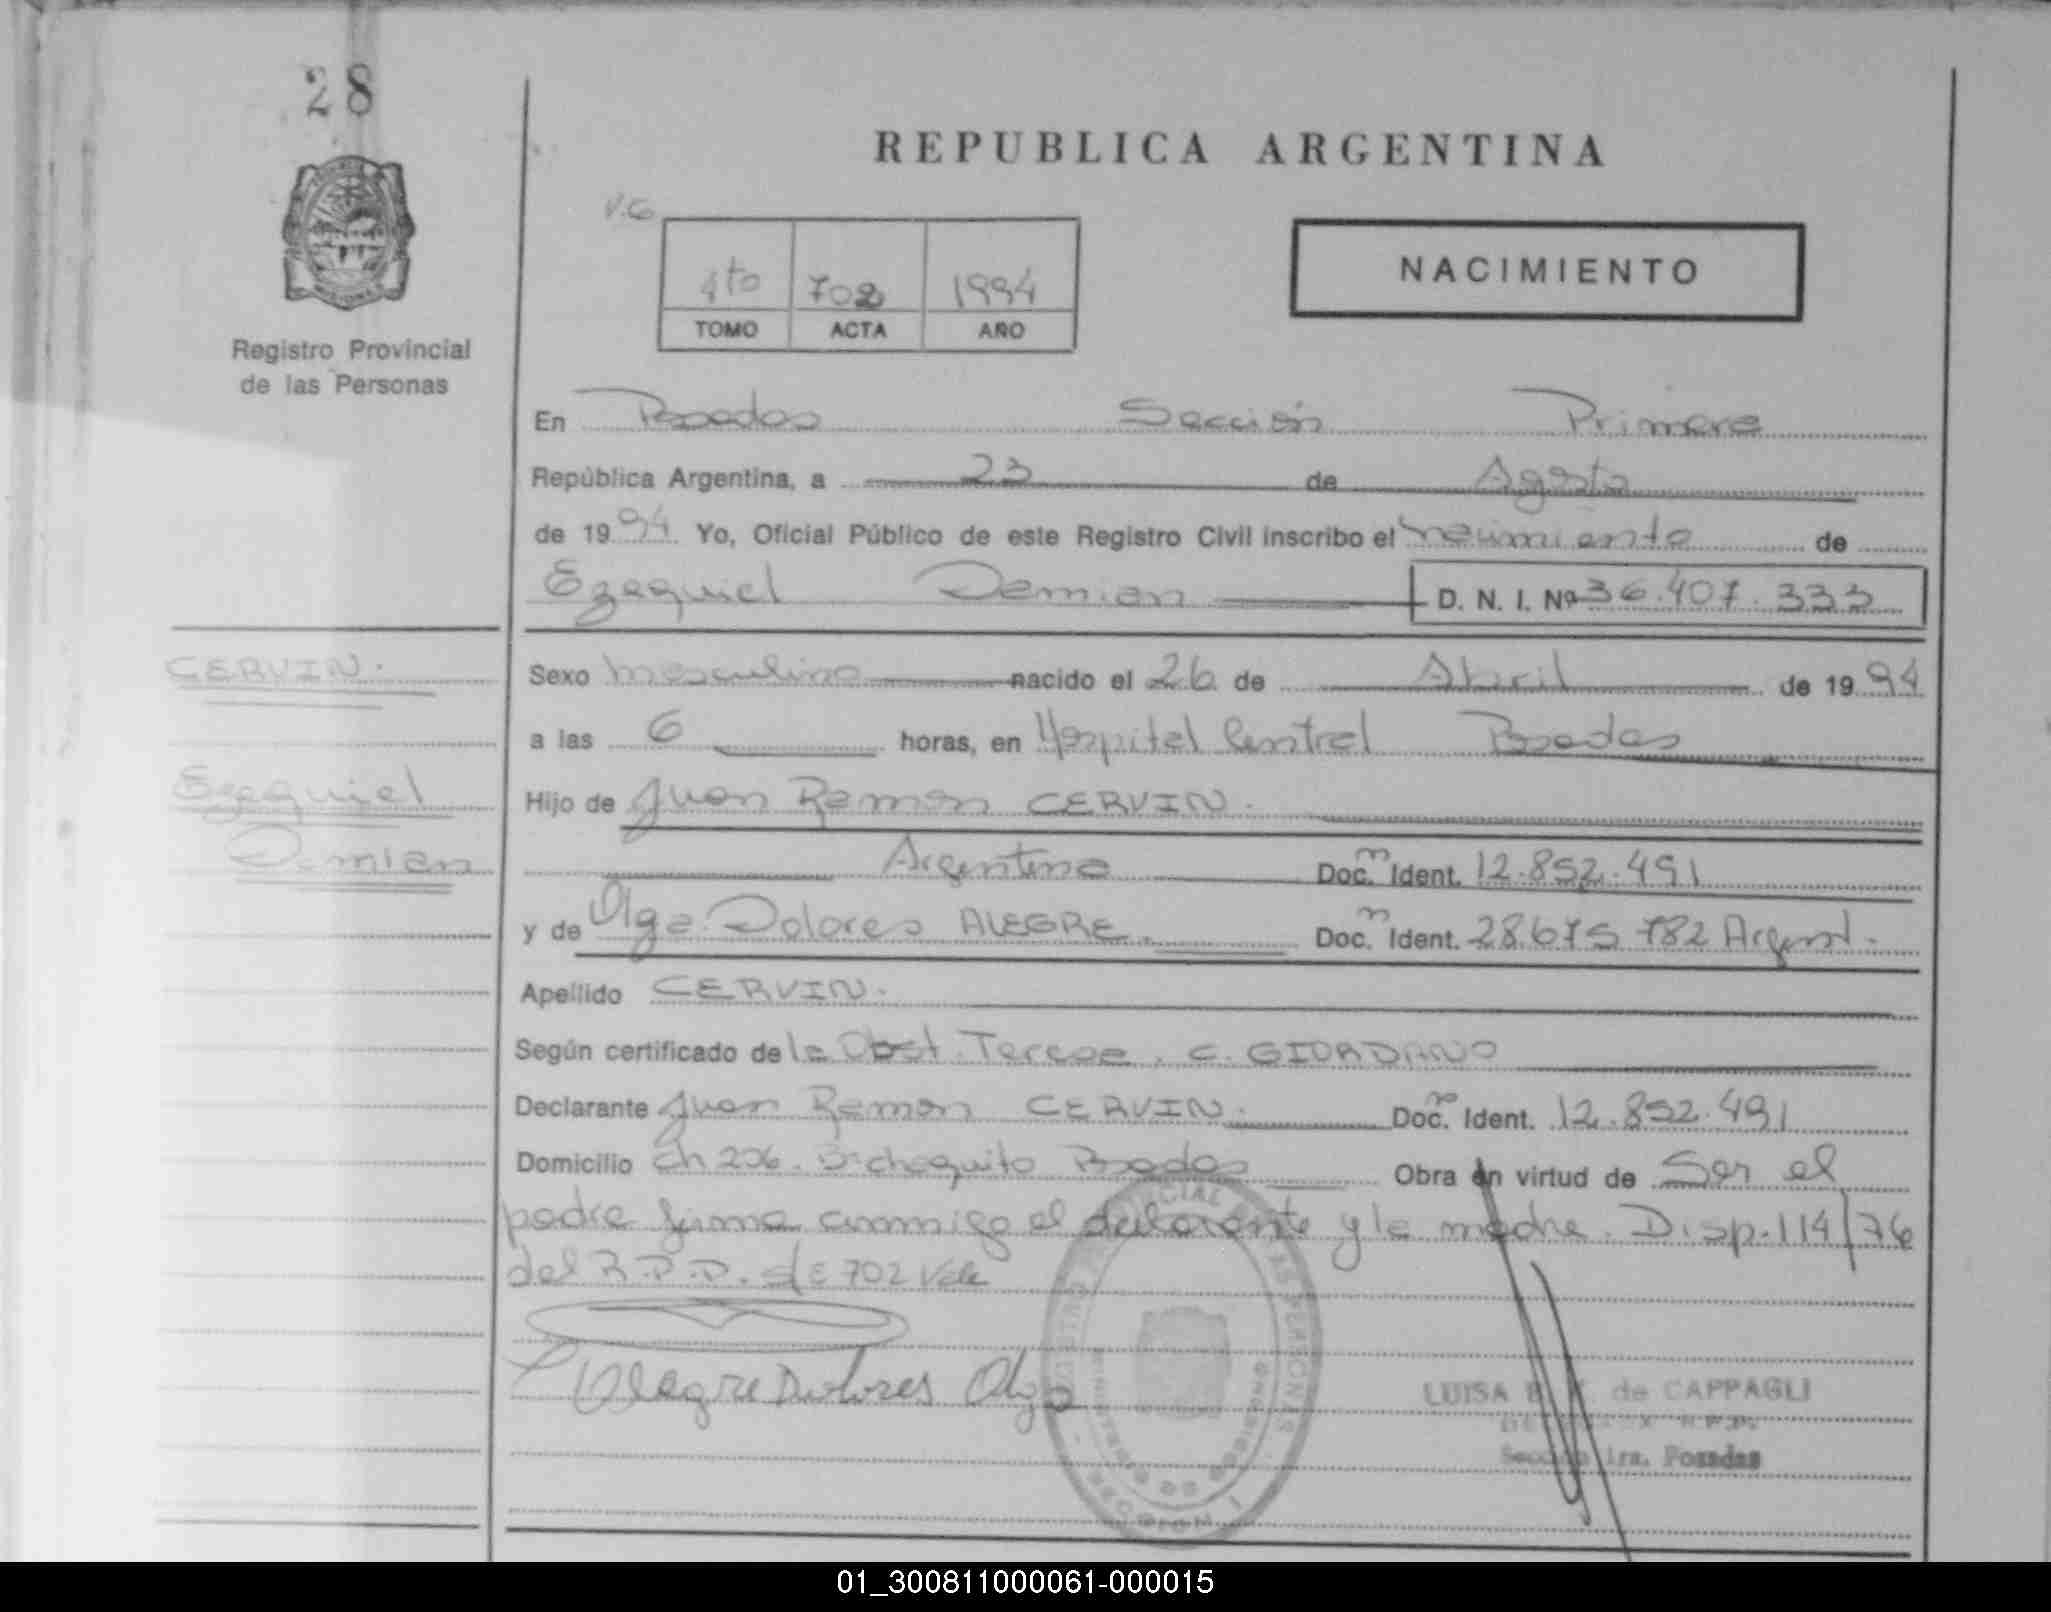 28
REPUBLICA ARGENTINA
V.C.
4to 702 1994
TOMO ACTA AÑO
NACIMIENTO
Registro Provincial
de las Personas
En Posadas Sección Primera
República Argentina, a 23 de Agosto
de 1994 Yo, Oficial Público de este Registro Civil inscribo el nacimiento de
Ezequiel Demian D. N. I. Nº 36.407.333
CERVIN.
Ezequiel
Demian
Sexo masculino nacido el 26 de Abril de 1994
a las 6 horas, en Hospital Central Posadas
Hijo de Juan Ramon CERVIN.
Argentino Doc.m Ident. 12.852.491
y de Olga Dolores ALEGRE. Doc.m Ident. 28.675.782 Argent.
Apellido CERVIN.
Según certificado de la Obst. Teresa. C. GIORDANO
Declarante Juan Ramon CERVIN. Doc.m Ident. 12.852.491
Domicilio Ch 206. Posadas Obra en virtud de Ser el
padre firma conmigo el declarante y la madre. Disp. 114/76
del R.P.P. s/e 702 Vale
Alegre Dolores Olga
LUISA de CAPPAGLI
R.P.P.
Sección 1ra. Posadas
01_300811000061-000015